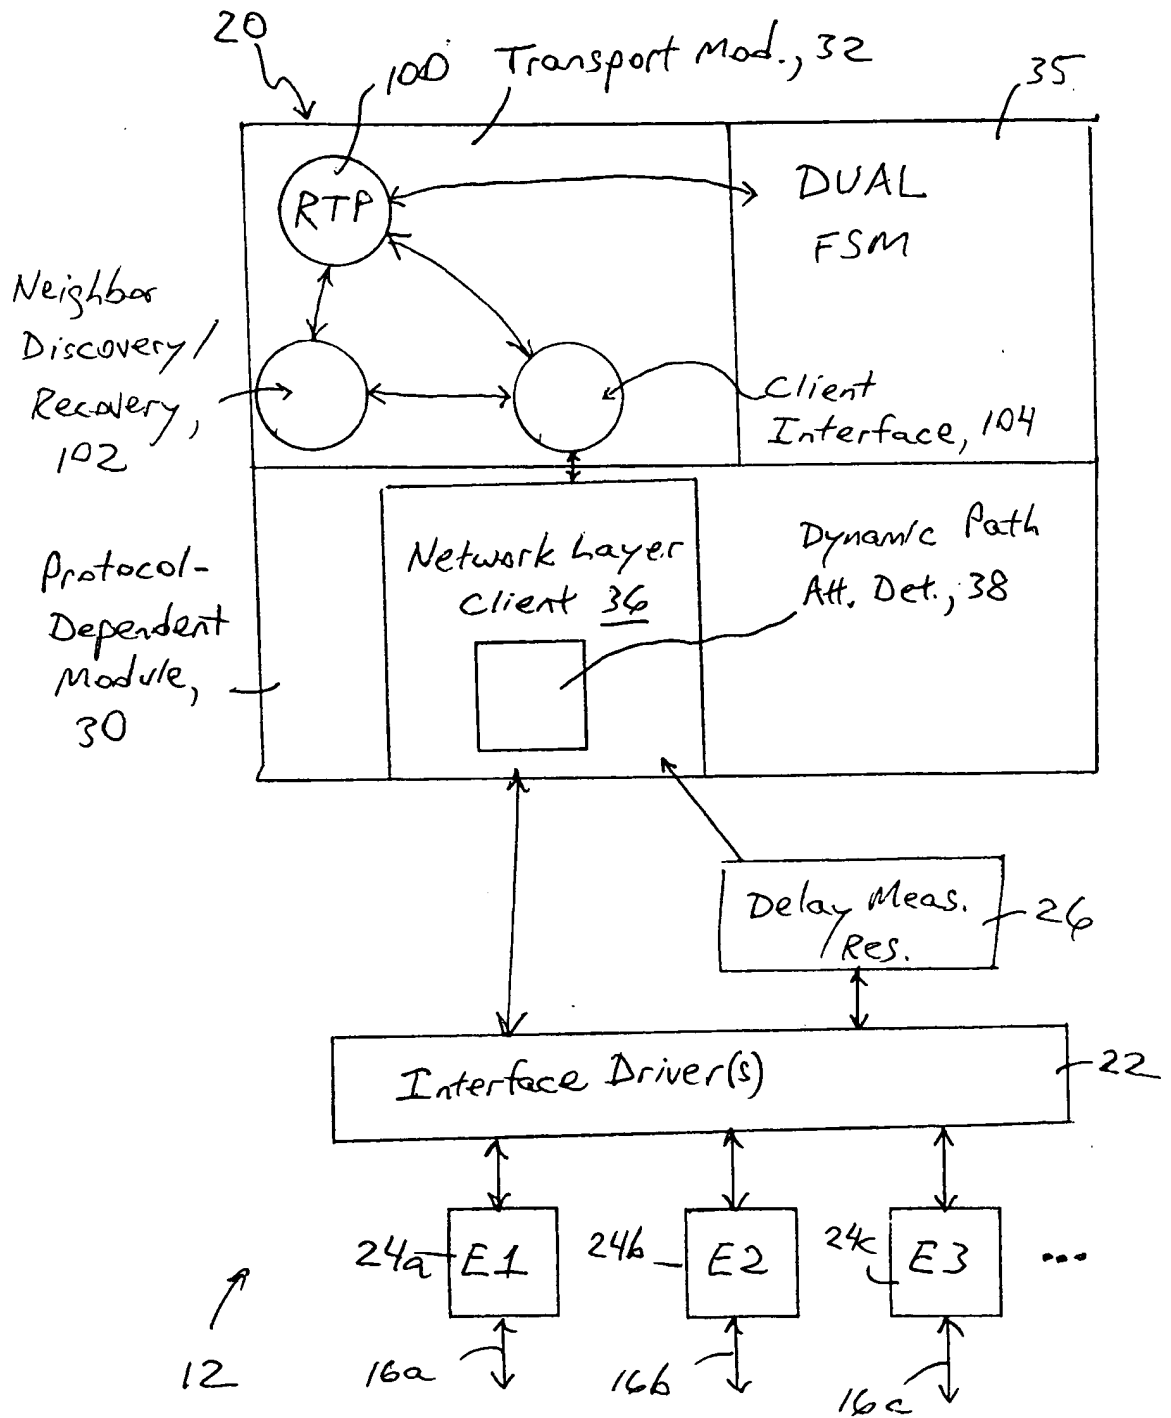 20
100
Transport Mod., 32
35
RTP
DUAL
FSM
Neighbor
Discovery/
Recovery,
102
Client
Interface, 104
Protocol-
Dependent
Module,
30
Network Layer
Client 36
Dynamic Path
Att. Det., 38
Delay Meas.
Res.
26
Interface Driver(s)
22
24a
E1
24b
E2
24c
E3
...
12
16a
16b
16c